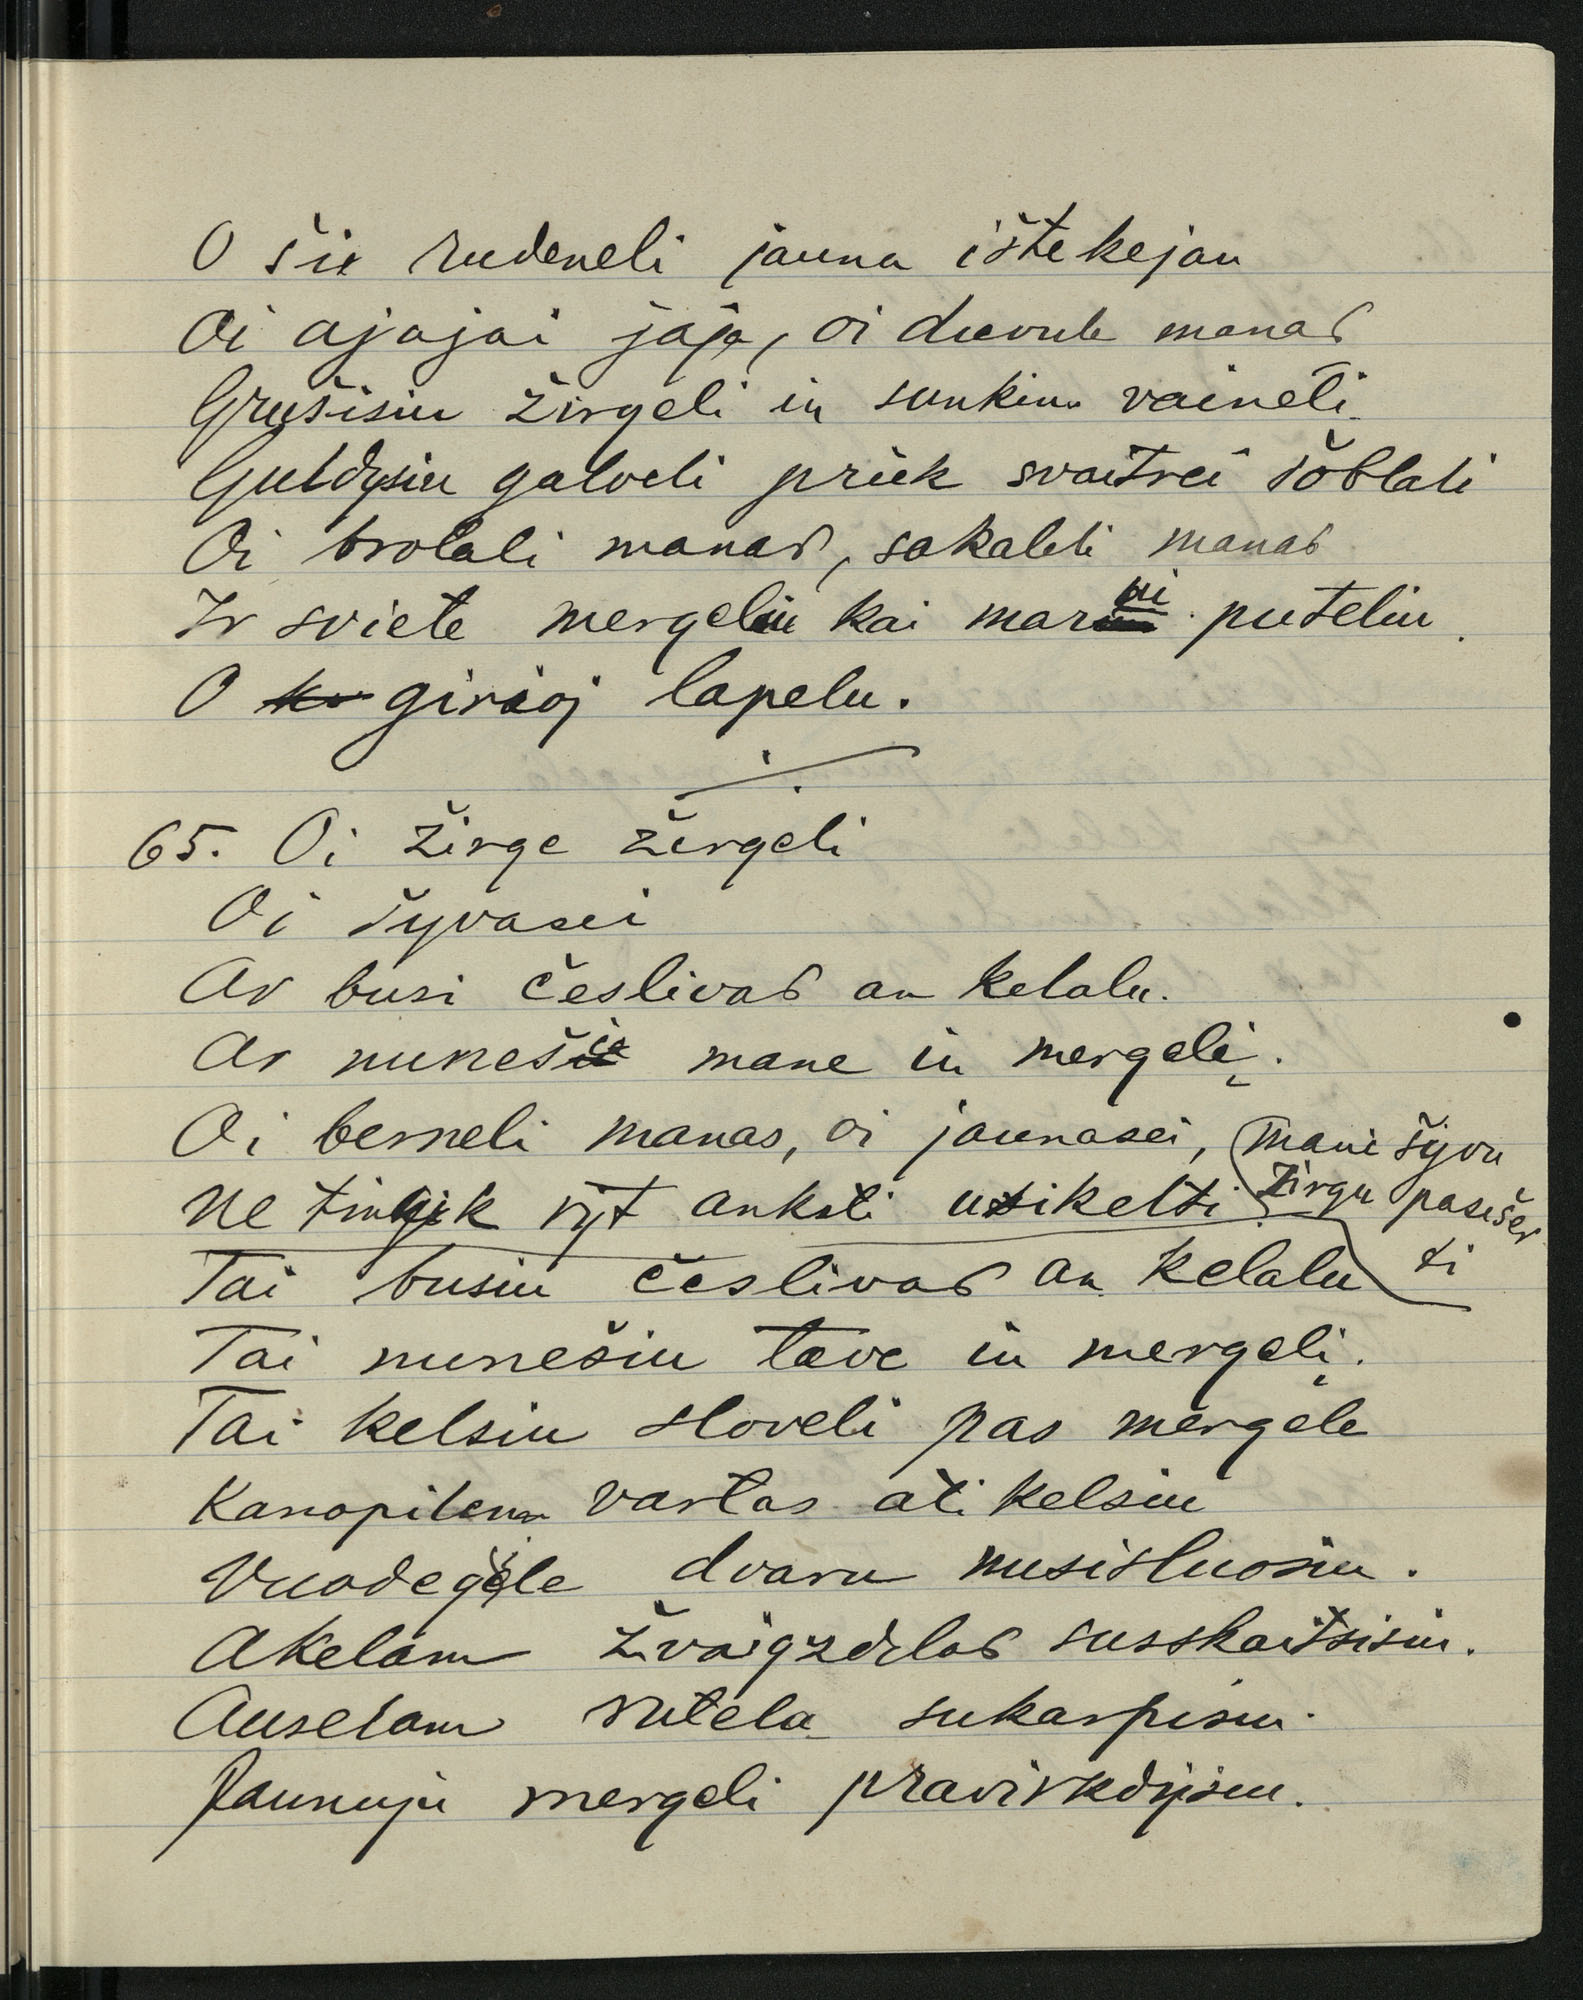 O šiu rudeneli jauna ištekejau
Oi ajajai jaja, oi dievule manas
Grušisiu žirgeli in sunkiu vaineli
Guldysiu galveli priek svaitrei šoblali
Oi brolali manas, sakaleli manas
Ir sviete mergeliu kai marui puteliu.
O girioj lapelu.
65. Oi žirge žirgeli
Oi šyvasei
Ar busi česlivas an kelalu.
Ar nunešie mane in mergelį.
Oi berneli manas, oi jaunasei, mani šyvu
Ne tingik ryt anksti usikelti žirgu pasišer
ti
Tai busiu česlivas an kelalu
Tai nunešiu tave in mergelį.
Tai kelsiu sloveli pas mergele
Kanopilem vartas atikelsiu
Vuodegele dvaru nusisluosiu.
Akelam žvaigzdelas susskaitsisiu.
Auselam rutela sukarpisiu.
Jaunuju mergeli pravirkdysiu.